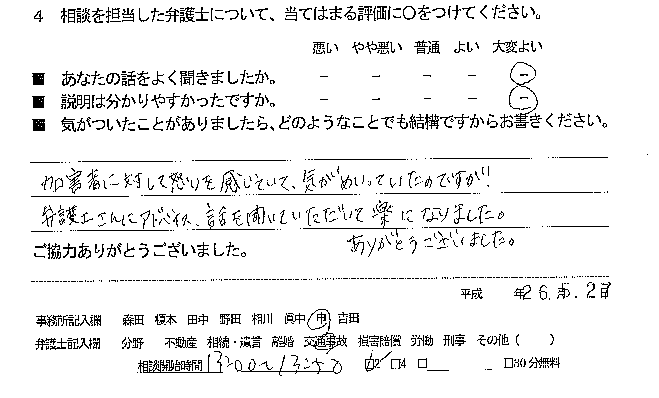 4 相談を担当した弁護士について、当てはまる評価に〇をつけてください。
悪い やや悪い 普通 よい 大変よい
■ あなたの話をよく聞きましたか。 － － － － －
■ 説明は分かりやすかったですか。 － － － － －
■ 気がついたことがありましたら、どのようなことでも結構ですからお書きください。
加害者に対して怒りを感じていて、気がめいっていたのですが!
弁護士さんにアドバイス、話を聞いていただいて楽になりました。
ありがとうございました。
ご協力ありがとうございました。
平成 年26.5.2日
事務所記入欄 森田 榎本 田中 野田 相川 眞中 申 吉田
弁護士記入欄 分野 不動産 相続・遺言 離婚 交通事故 損害賠償 労働 刑事 その他( )
相談開始時間 13:00~13:50 □2 □4 □ □30分無料